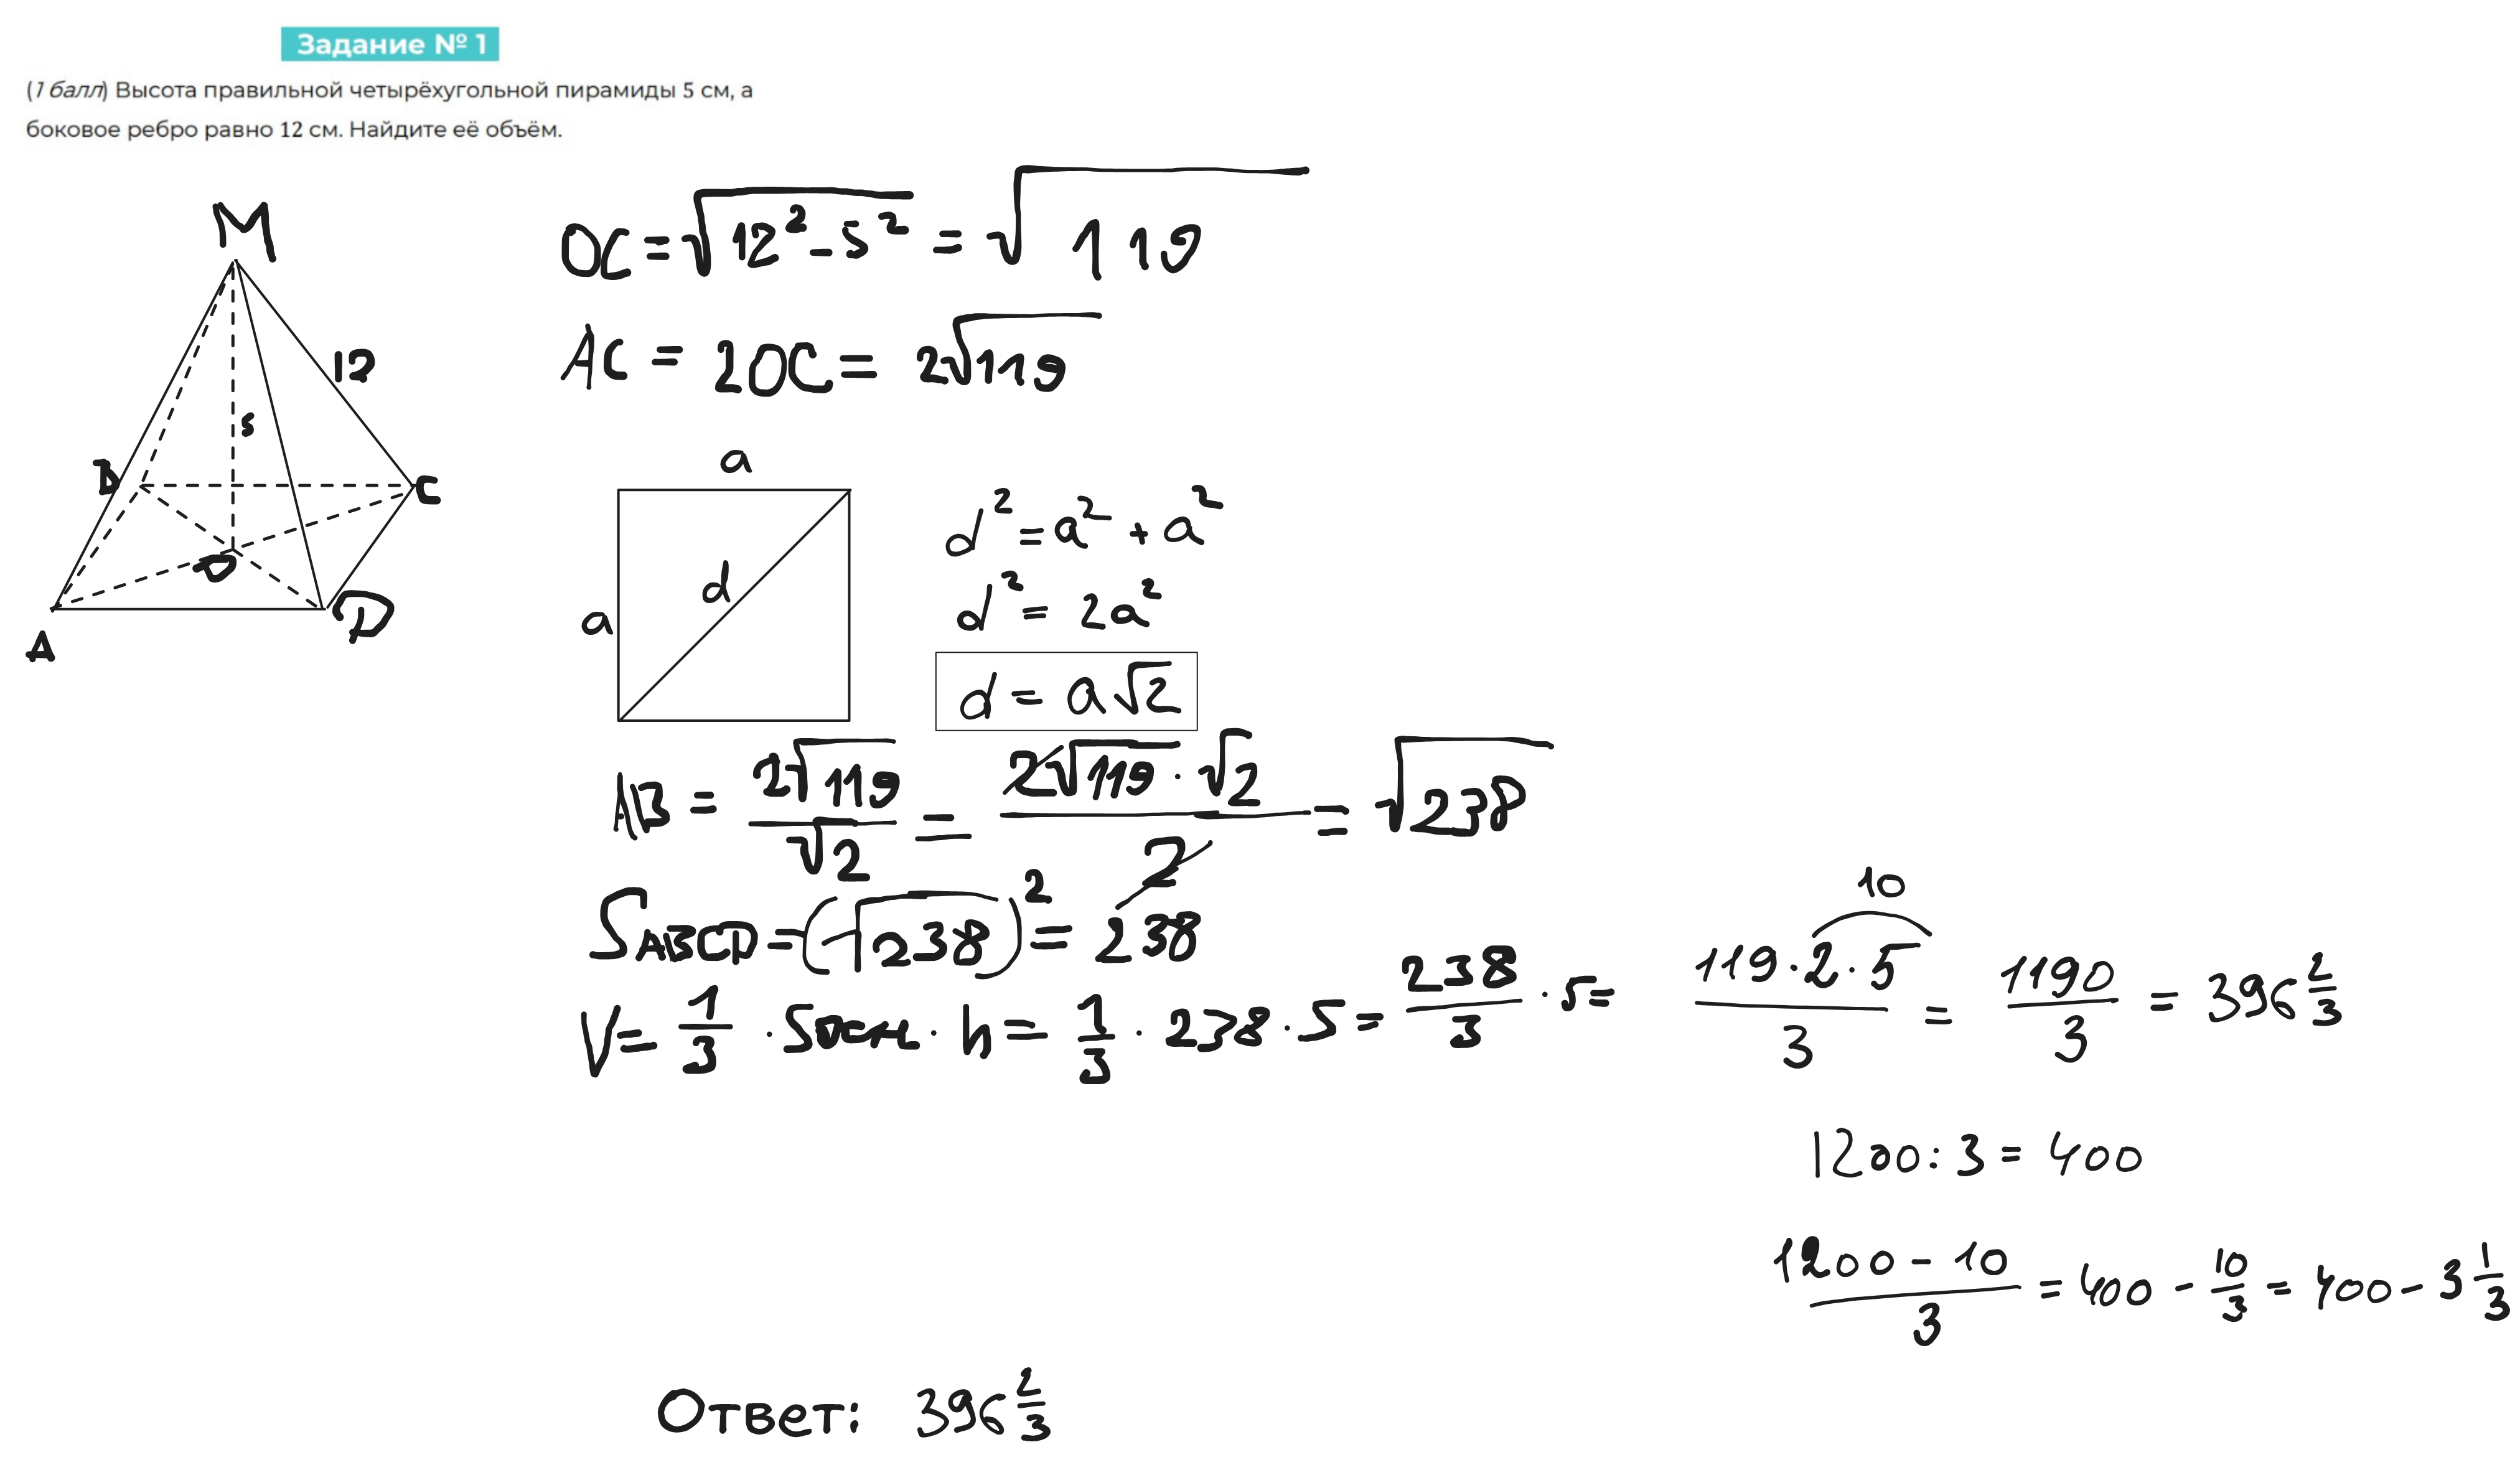 Задание № 1
(1 балл) Высота правильной четырёхугольной пирамиды 5 см, а
боковое ребро равно 12 см. Найдите её объём.
M
12
5
B
C
O
D
A
OC = √(12² - 5²) = √119
AC = 2OC = 2√119
a
a
d
d² = a² + a²
d² = 2a²
d = a√2
AB = 2√119/√2 = 2√119 · √2/2 = √238
S ABCD = (√238)² = 238
V = 1/3 · Sосн · h = 1/3 · 238 · 5 = 238/3 · 5 = 119 · 2 · 5/3 = 1190/3 = 396 2/3
10
1200 : 3 = 400
1200 - 10/3 = 400 - 10/3 = 400 - 3 1/3
Ответ: 396 2/3